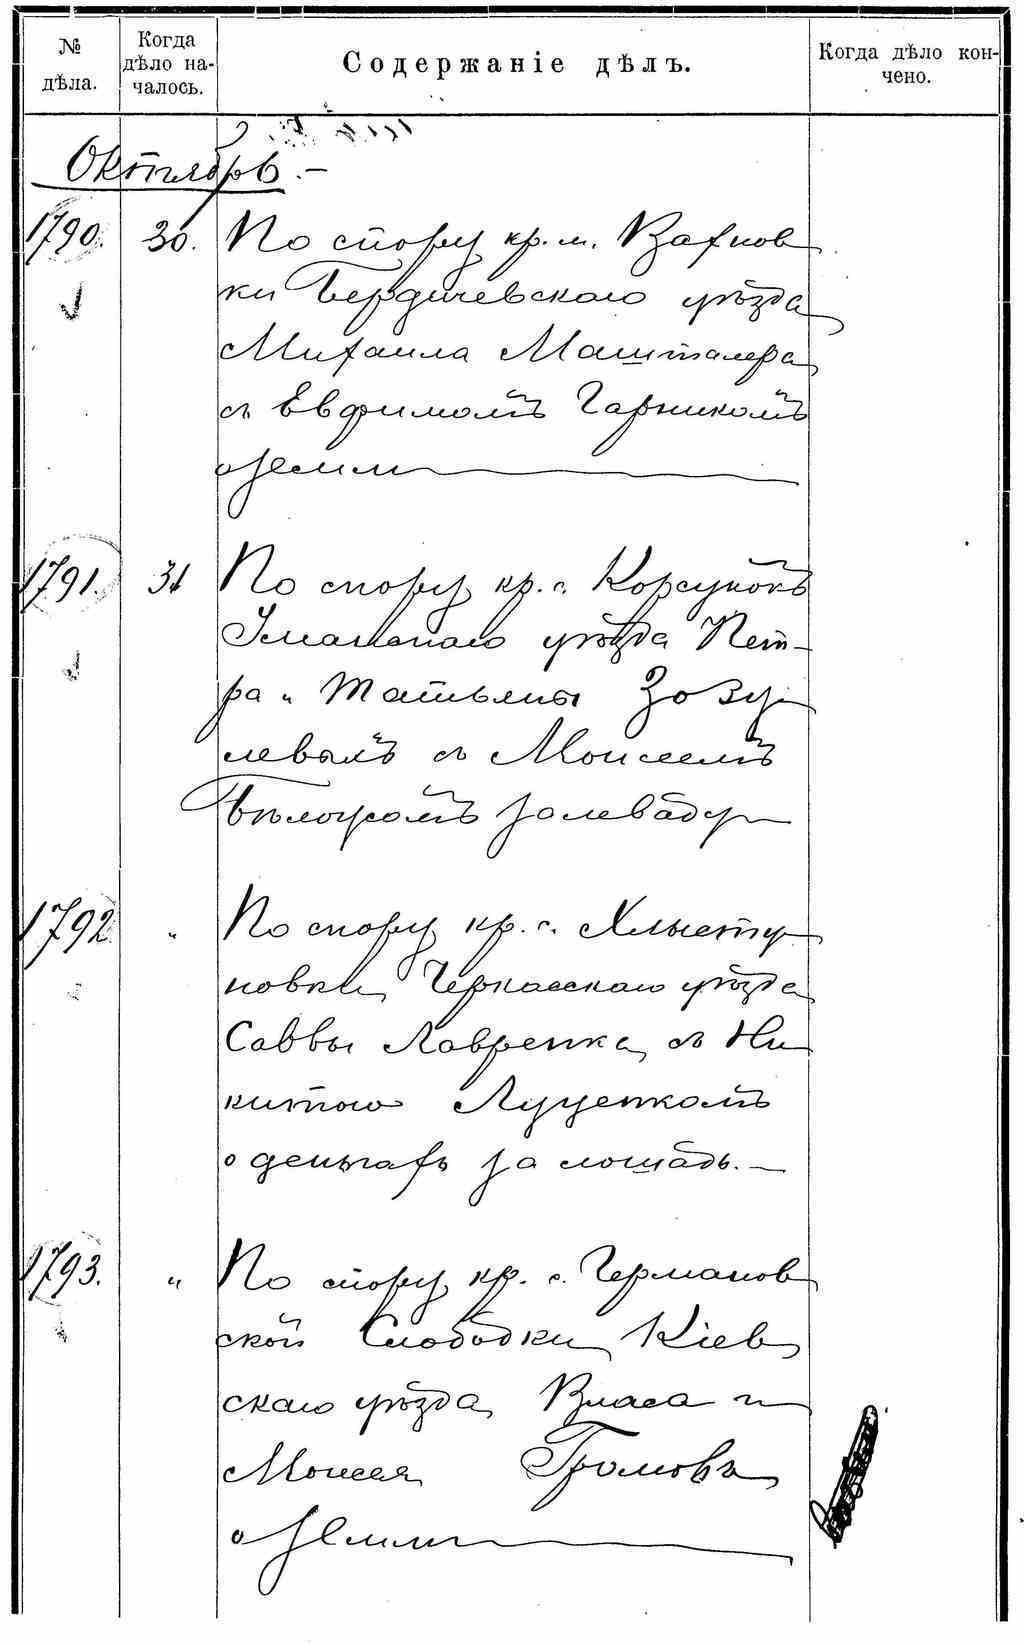 № дѣла.
Когда дѣло на-чалось.
Содержаніе дѣлъ.
Когда дѣло кон-чено.
Октябрь.–
1790. 30. По спору кр. м. Вахнов
ки Бердичевскаго уѣзда
Михаила Машталера
съ Евфимомъ Гарникомъ
о земли
1791. 31 По спору кр. с. Корсунокъ
Уманскаго уѣзда Пет–
ра и Татьяны Зозу
левыхъ съ Моисеемъ
Бѣлоусомъ за леваду
1792 " По спору кр. с. Хлысту
новки Черкасскаго уѣзда
Саввы Лавренка съ Ни
китою Луценкомъ
о деньгахъ за лошадь.–
1793. " По спору кр. с. Германов
ской Слободки Кіев
скаго уѣзда Власа и
Моисея Громовъ
о земли